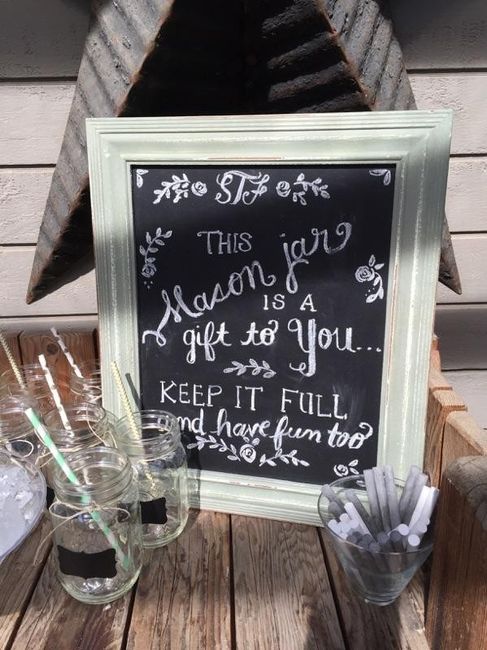 STF
THIS
Mason jar
IS A
gift to You...
KEEP IT FULL
and have fun too